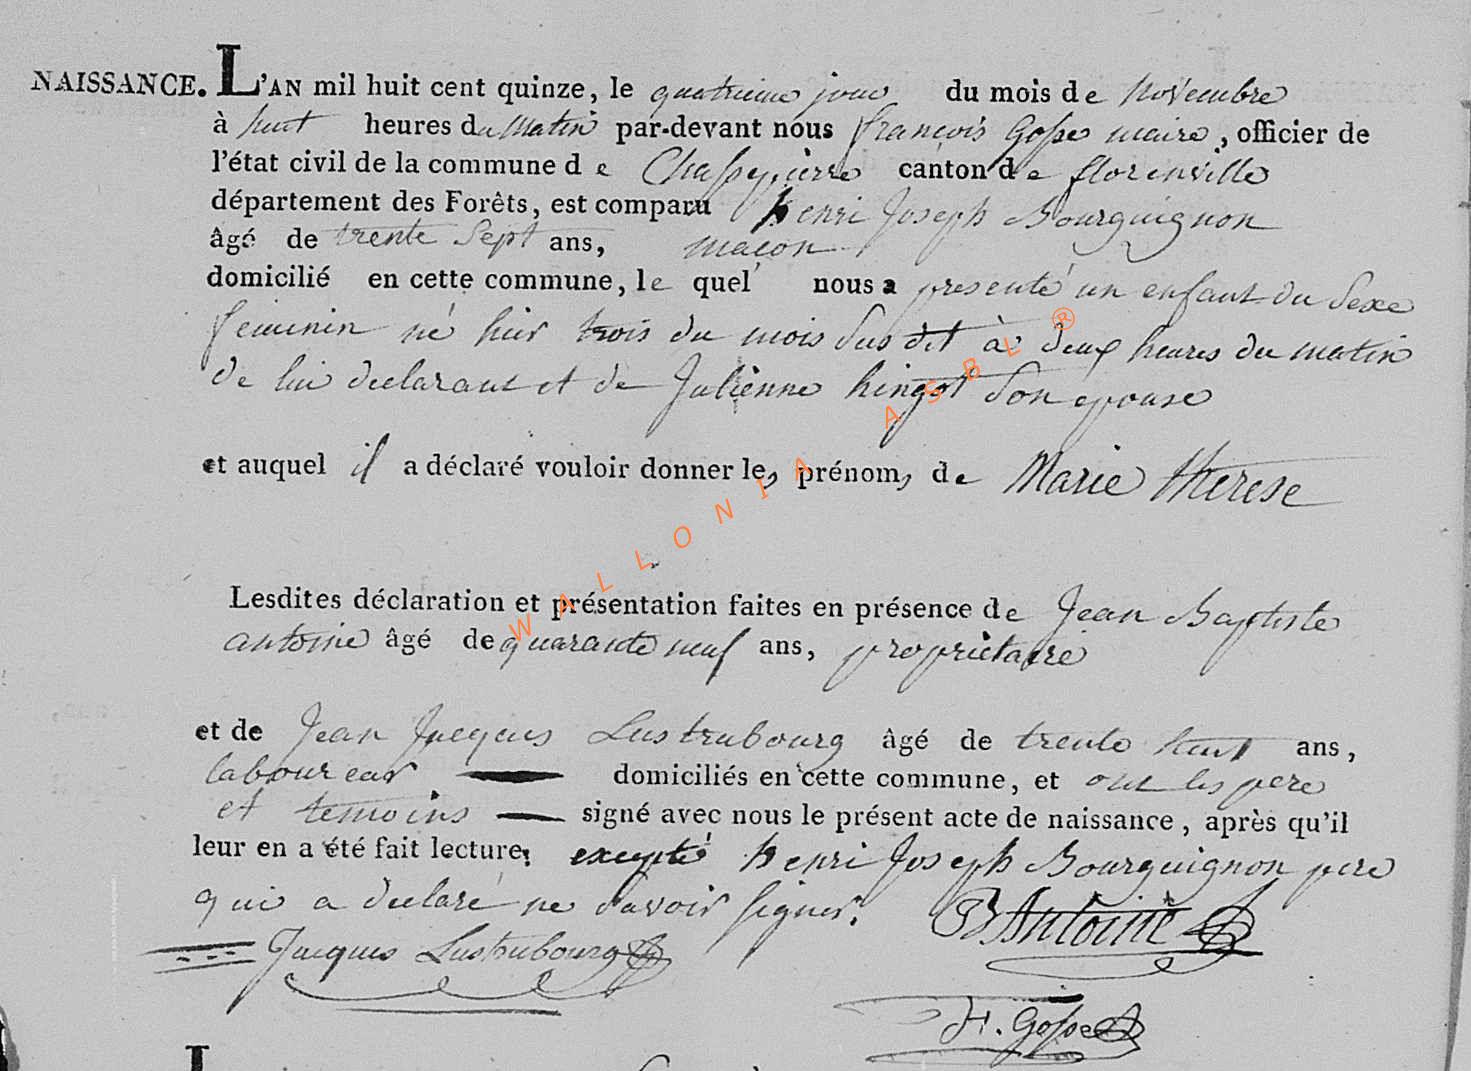 NAISSANCE. L'AN mil huit cent quinze, le quatrieme jour du mois de Novembre
à huit heures du Matin par-devant nous françois Gosse maire, officier de
l'état civil de la commune de Chassepierre canton de florenville
département des Forêts, est comparu henri Joseph Bourguignon
âgé de trente Sept ans, maçon
domicilié en cette commune, le quel nous a presenté un enfant du Sexe
feminin né hier trois du mois Sus dit à deux heures du matin
de lui declarant et de Julienne hingot Son epouse
et auquel il a déclaré vouloir donner les prénoms de Marie therese
Lesdites déclaration et présentation faites en présence de Jean Baptiste
antoine âgé de quarante neuf ans, propriétaire
et de Jean Jacques Lustrubourg âgé de trente huit ans,
laboureur domiciliés en cette commune, et ont les pere
et temoins signé avec nous le présent acte de naissance, après qu'il
leur en a été fait lecture; excepté henri Joseph Bourguignon pere
qui a declaré ne Savoir Signer.
JB Antoine
Jacques Lustrubourg
F. Gosse
WALLONIA ASBL ®